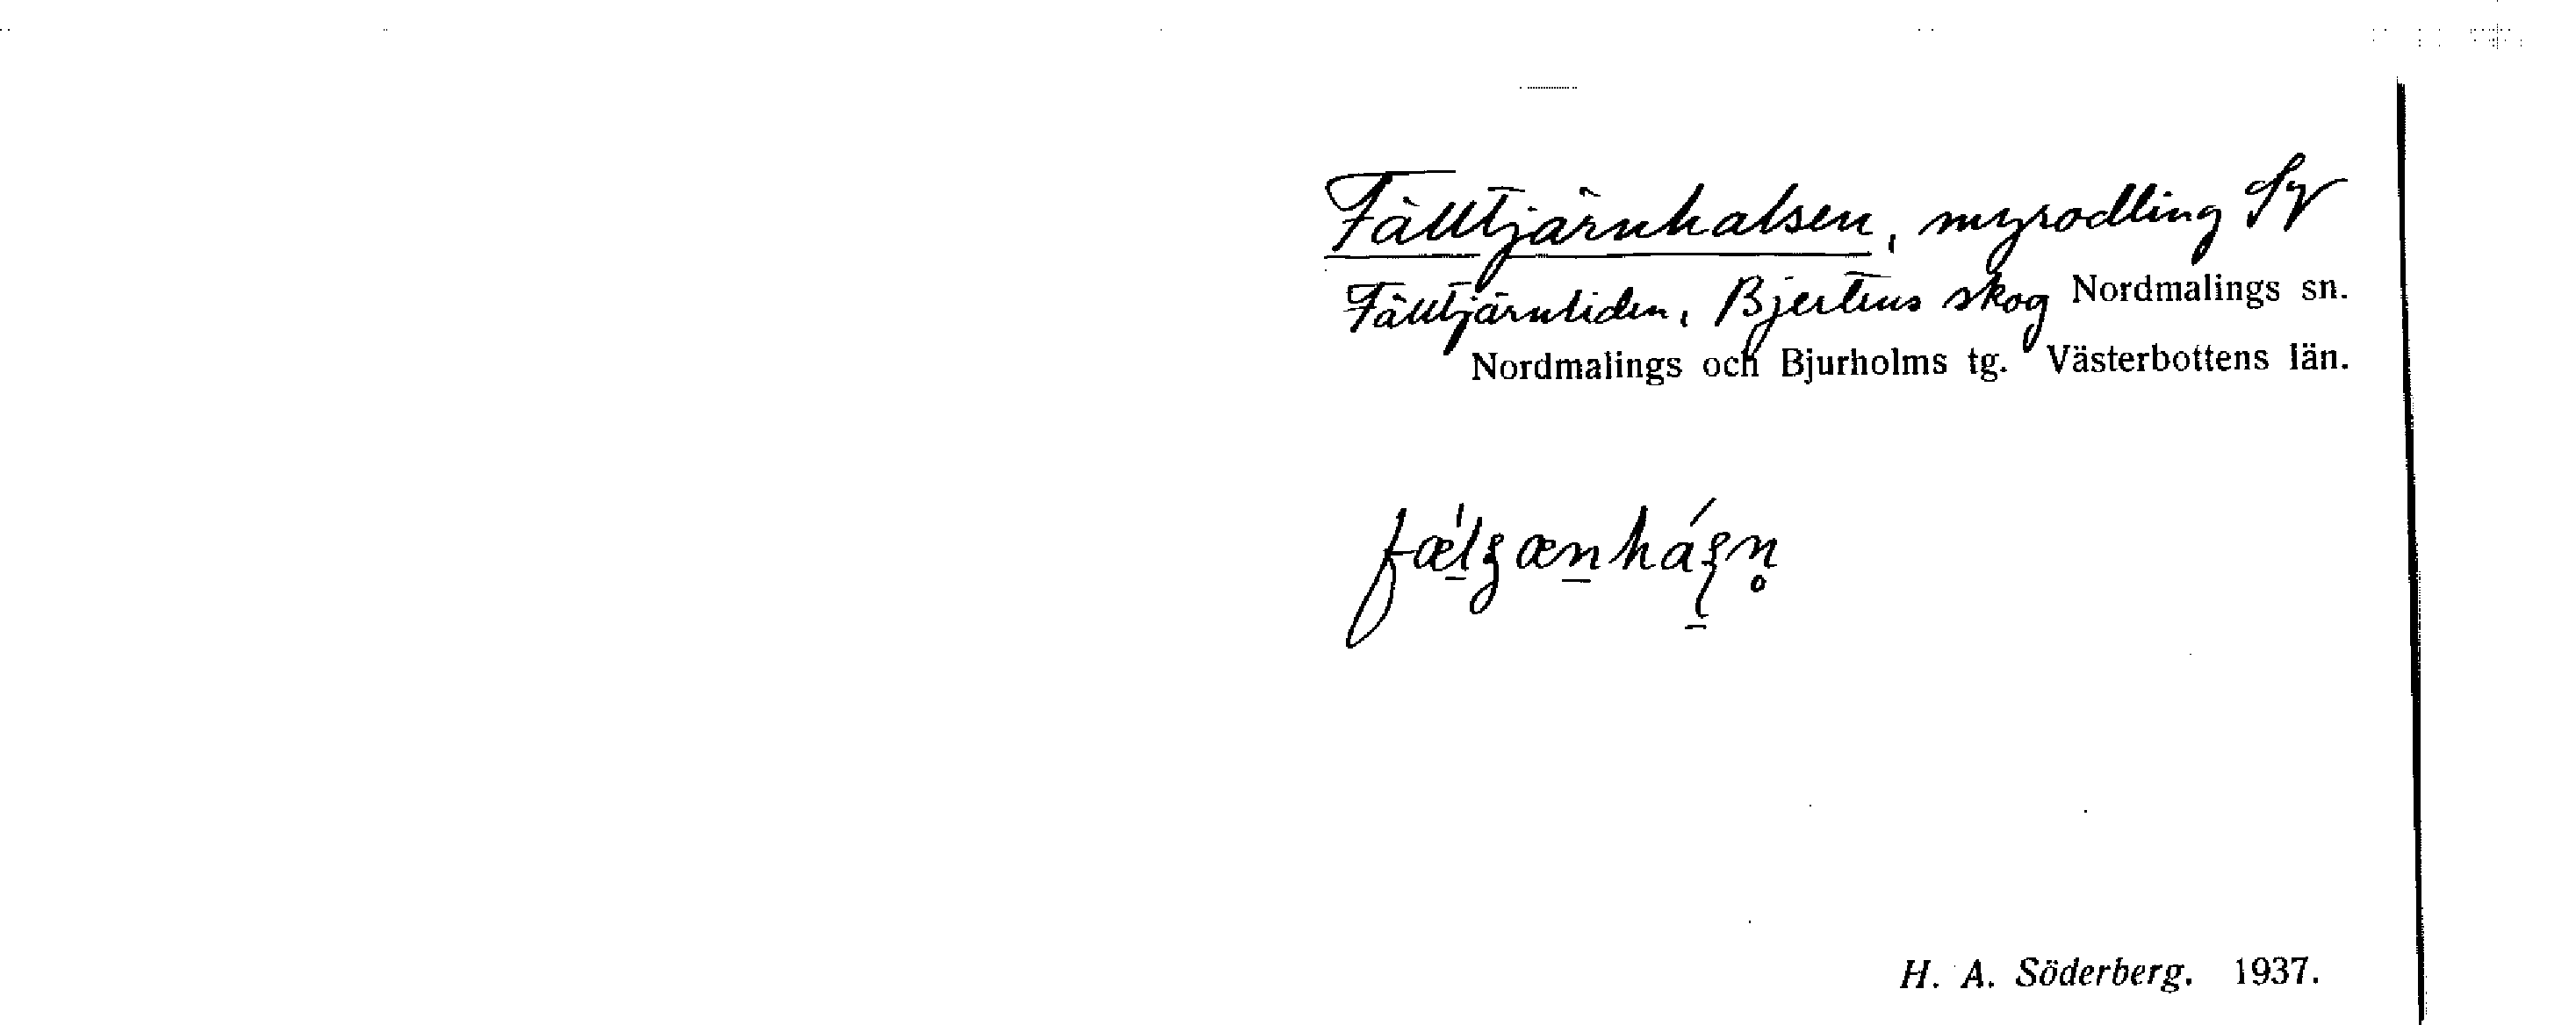 Fälltjärnhalsen, myrodling SV
Fälltjärnliden, Bjertens skog Nordmalings sn.
Nordmalings och Bjurholms tg. Västerbottens län.
H. A. Söderberg. 1937.